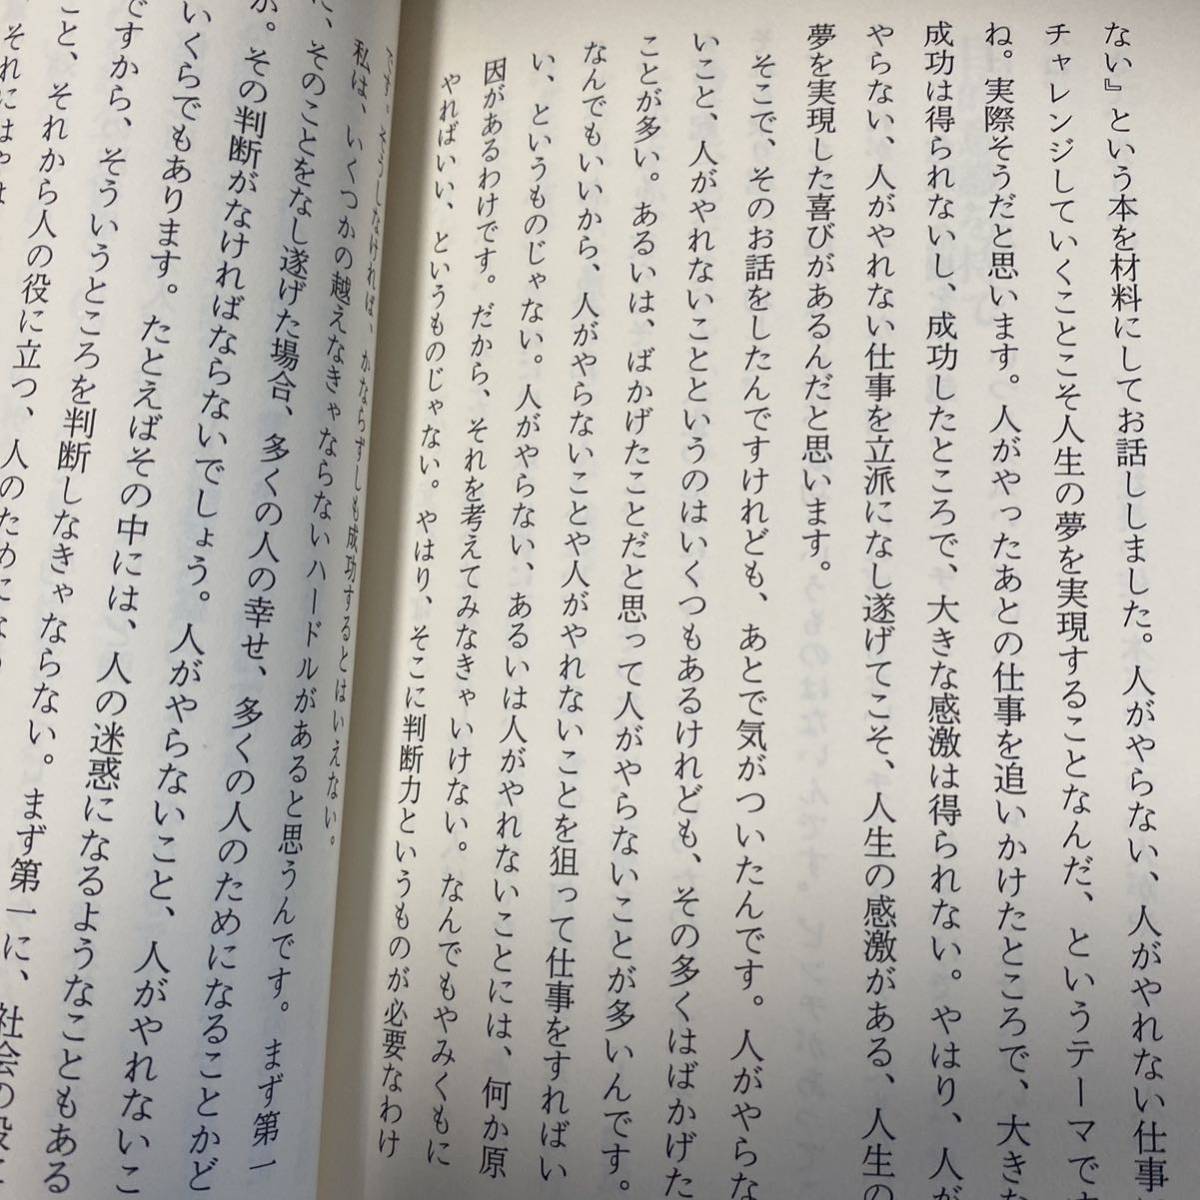 ない』という本を材料にしてお話ししました。人がやらない、人がやれない仕事
チャレンジしていくことこそ人生の夢を実現することなんだ、というテーマで
ね。実際そうだと思います。人がやったあとの仕事を追いかけたところで、大きな
成功は得られないし、成功したところで、大きな感激は得られない。やはり、人が
やらない、人がやれない仕事を立派になし遂げてこそ、人生の感激がある、人生の
夢を実現した喜びがあるんだと思います。
そこで、そのお話をしたんですけれども、あとで気がついたんです。人がやらな
いこと、人がやれないことというのはいくつもあるけれども、その多くはばかげた
ことが多い。あるいは、ばかげたことだと思って人がやらないことが多いんです。
なんでもいいから、人がやらないことや人がやれないことを狙って仕事をすればい
い、というものじゃない。人がやらない、あるいは人がやれないことには、何か原
因があるわけです。だから、それを考えてみなきゃいけない。なんでもやみくもに
やればいい、というものじゃない。やはり、そこに判断力というものが必要なわけ
です。そうしなければ、かならずしも成功するとはいえない。
私は、いくつかの越えなきゃならないハードルがあると思うんです。まず第一
に、そのことをなし遂げた場合、多くの人の幸せ、多くの人のためになることかど
か。その判断がなければならないでしょう。人がやらないこと、人がやれないこ
いくらでもあります。たとえばその中には、人の迷惑になるようなこともある
ですから、そういうところを判断しなきゃならない。まず第一に、社会の役に
こと、それから人の役に立つ、人のためにな
それにはやは